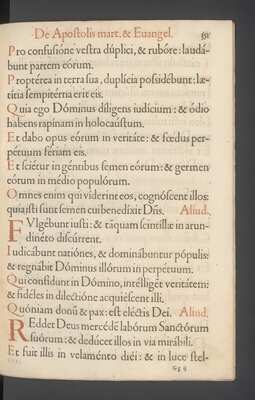 De Apostolis mart. & Euangel.
Pro confusióne vestra dúplici, & rubóre: laudá-
bunt partem eórum.
Proptérea in terra sua, duplícia possidébunt: læ-
titia sempitérna erit eis.
Quia ego Dóminus díligens iudícium: & ódio
habens rapínam in holocaústum.
Et dabo opus eórum in veritáte: & fœdus per-
pétuum fériam eis.
Et sciétur in géntibus semen eórum: & germen
eórum in médio populórum.
Omnes enim qui víderint eos, cognóscent illos:
quia isti sunt semen cui benedíxit Dñs. Aliud.
FVlgébunt iusti: & tāquam scintíllæ in arun-
dinéto discúrrent.
Iudicábunt natiónes, & dominabúntur pópulis:
& regnábit Dóminus illórum in perpétuum.
Qui confídunt in Dómino, intélligēt veritátem:
& fidéles in dilectióne acquiéscent illi.
Quóniam donū & pax: est eléctis Dei. Aliud.
REddet Deus mercédē labórum Sanctórum
suórum: & dedúcet illos in via mirábili.
Et fuit illis in velaménto diéi: & in luce stel-